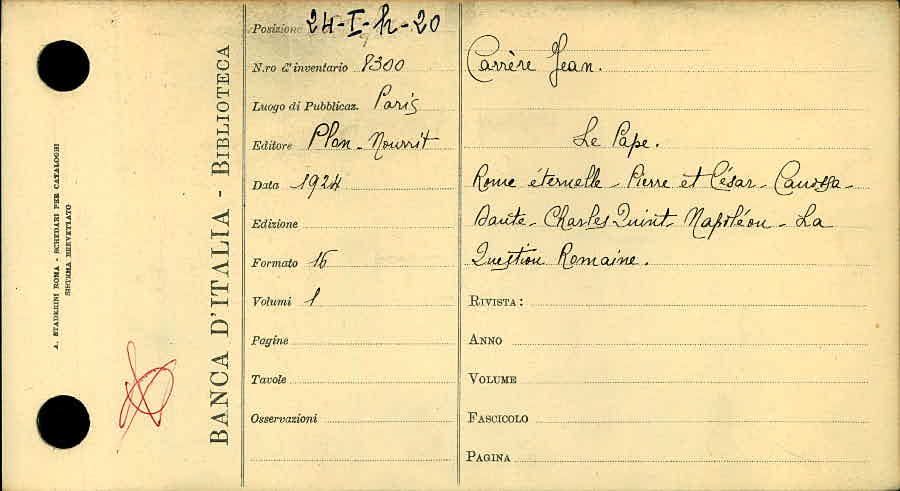 A. STADERINI ROMA - SCHEDARI PER CATALOGHI
SISTEMA BREVETTATO
BANCA D'ITALIA - BIBLIOTECA
Posizione 24-I-h-20
N.ro d'inventario 8300
Luogo di Pubblicaz. Paris
Editore Plon-Nourrit
Data 1924
Edizione
Formato 16
Volumi 1
Pagine
Tavole
Osservazioni
Carrère Jean.
Le Pape.
Rome éternelle - Pierre et César - Canossa -
Dante - Charles Quint - Napoléon - La
Question Romaine.
RIVISTA:
ANNO
VOLUME
FASCICOLO
PAGINA